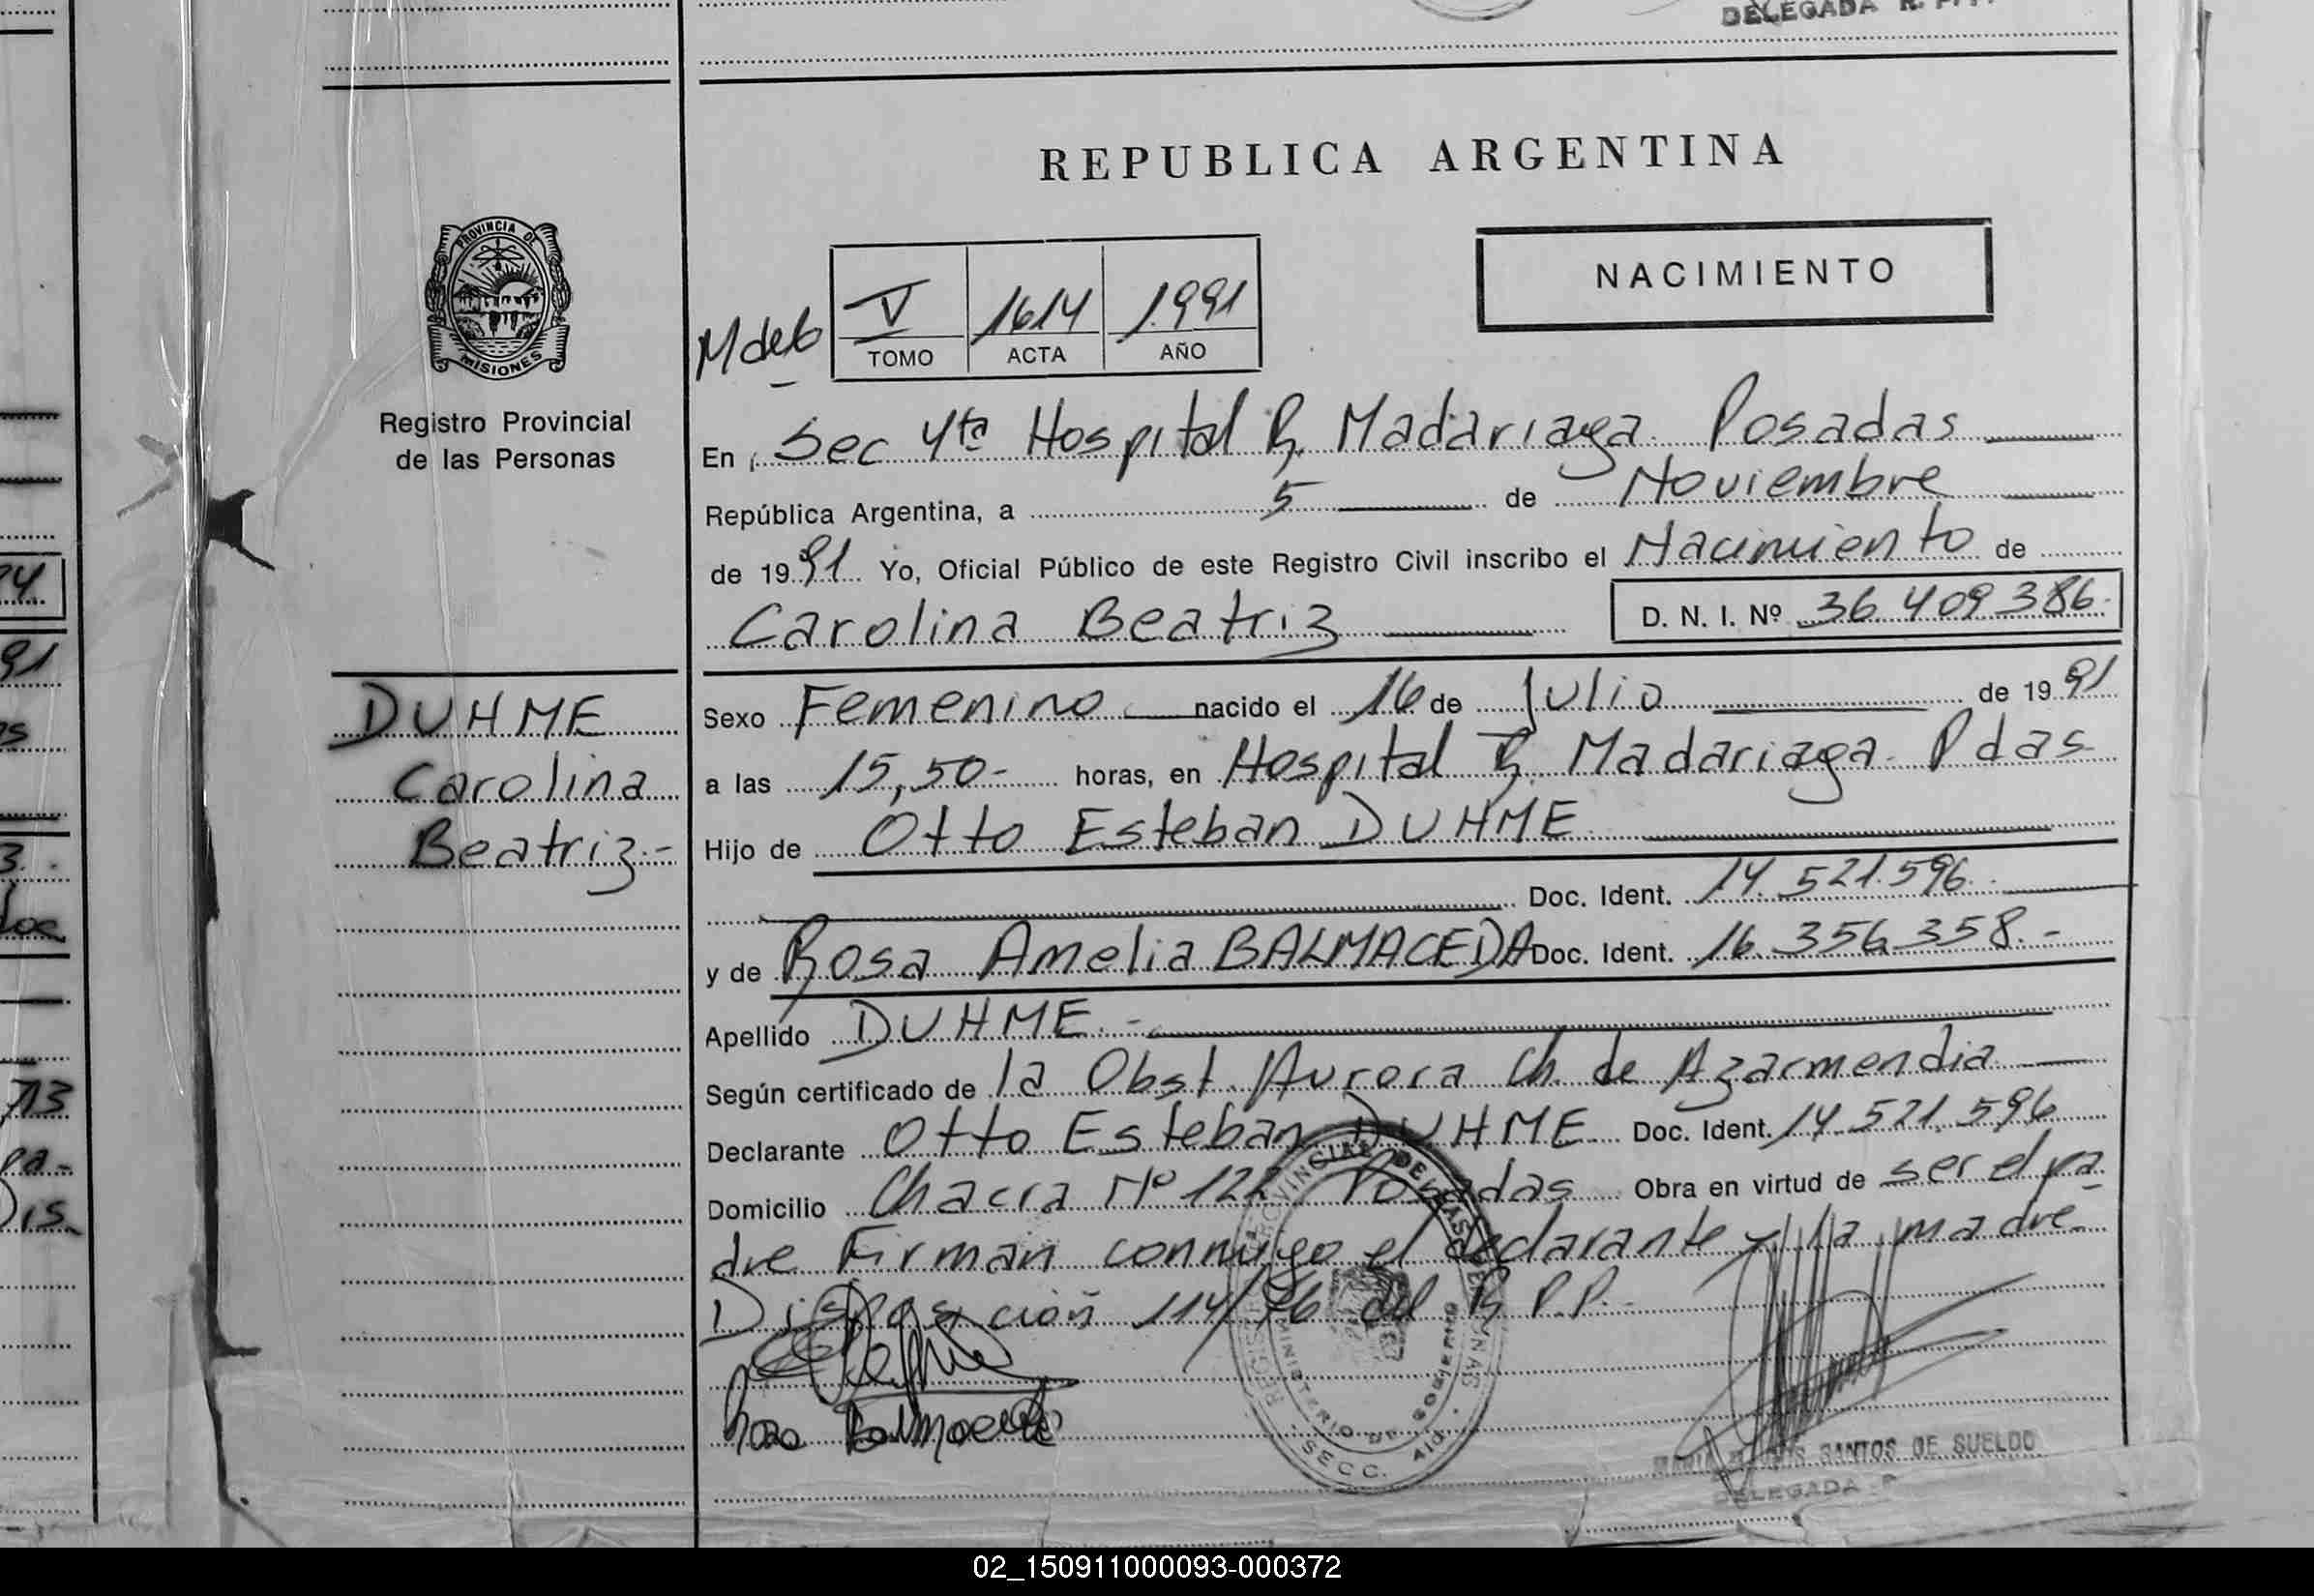 DELEGADA R. P.
REPUBLICA ARGENTINA
NACIMIENTO
PROVINCIA DE
MISIONES
Registro Provincial
de las Personas
V 1614 1.991
TOMO ACTA AÑO
En Sec 4ta Hospital R. Madariaga. Posadas
República Argentina, a 5 de Noviembre
de 1991 Yo, Oficial Público de este Registro Civil inscribo el Nacimiento de
Carolina Beatriz D. N. I. Nº 36.409.386.
DUHME
Carolina
Beatriz.-
Sexo Femenino nacido el 16 de Julio de 1991
a las 15,50- horas, en Hospital R. Madariaga. Pdas
Hijo de Otto Esteban DUHME
Doc. Ident. 14.521.596.
y de Rosa Amelia BALMACEDA Doc. Ident. 16.356.358.-
Apellido DUHME.-
Según certificado de la Obst. Aurora Ch. de Azarmendia
Declarante Otto Esteban DUHME Doc. Ident. 14.521.596
Domicilio Chacra Nº 122 Posadas Obra en virtud de ser el pa
dre Firman conmigo el declarante y la madre
Disposición 114/76 del R.P.P.-
Rosa Balmaceda
REGISTRO PROVINCIAL DE LAS PERSONAS
MINISTERIO DE GOBIERNO
SECC. 4ta
SANTOS DE SUELDO
DELEGADA
24
91
3.-
713
pa-
Dis.
02_150911000093-000372